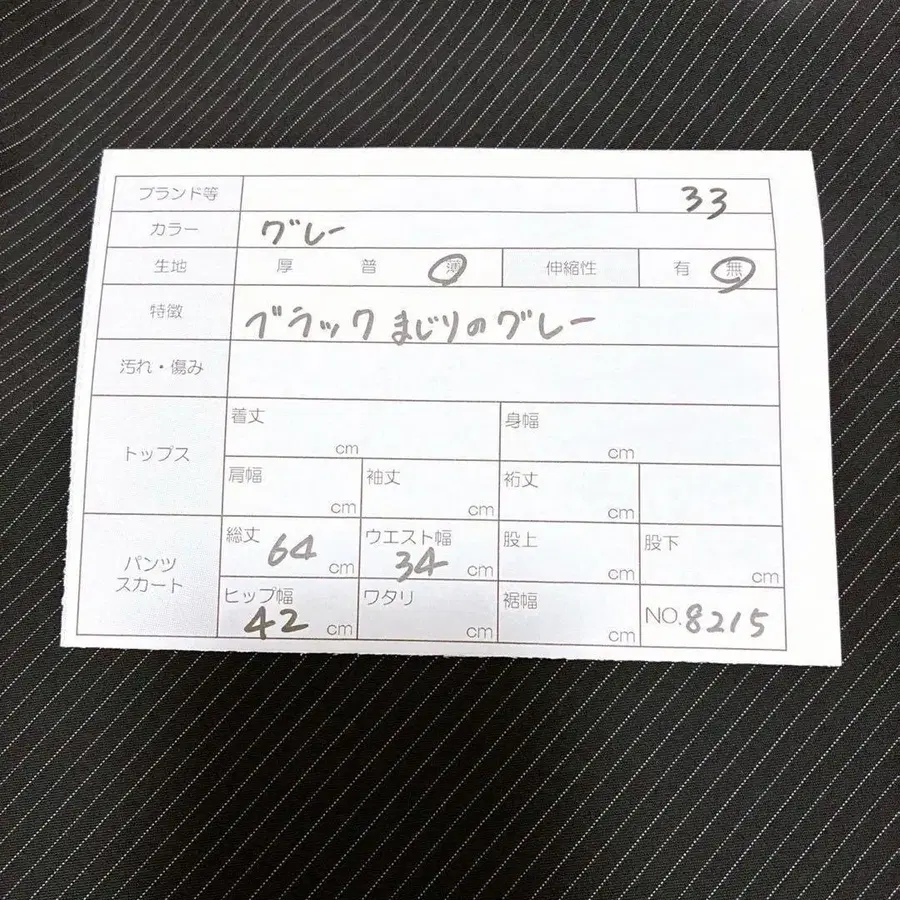 ブランド等 33
カラー グレー
生地 厚 普 薄 伸縮性 有 無
特徴 ブラックまじりのグレー
汚れ・傷み
トップス
着丈 cm 身幅 cm
肩幅 cm 袖丈 cm 裄丈 cm
パンツ
スカート
総丈 64 cm ウエスト幅 34 cm 股上 cm 股下 cm
ヒップ幅 42 cm ワタリ cm 裾幅 cm NO. 8215